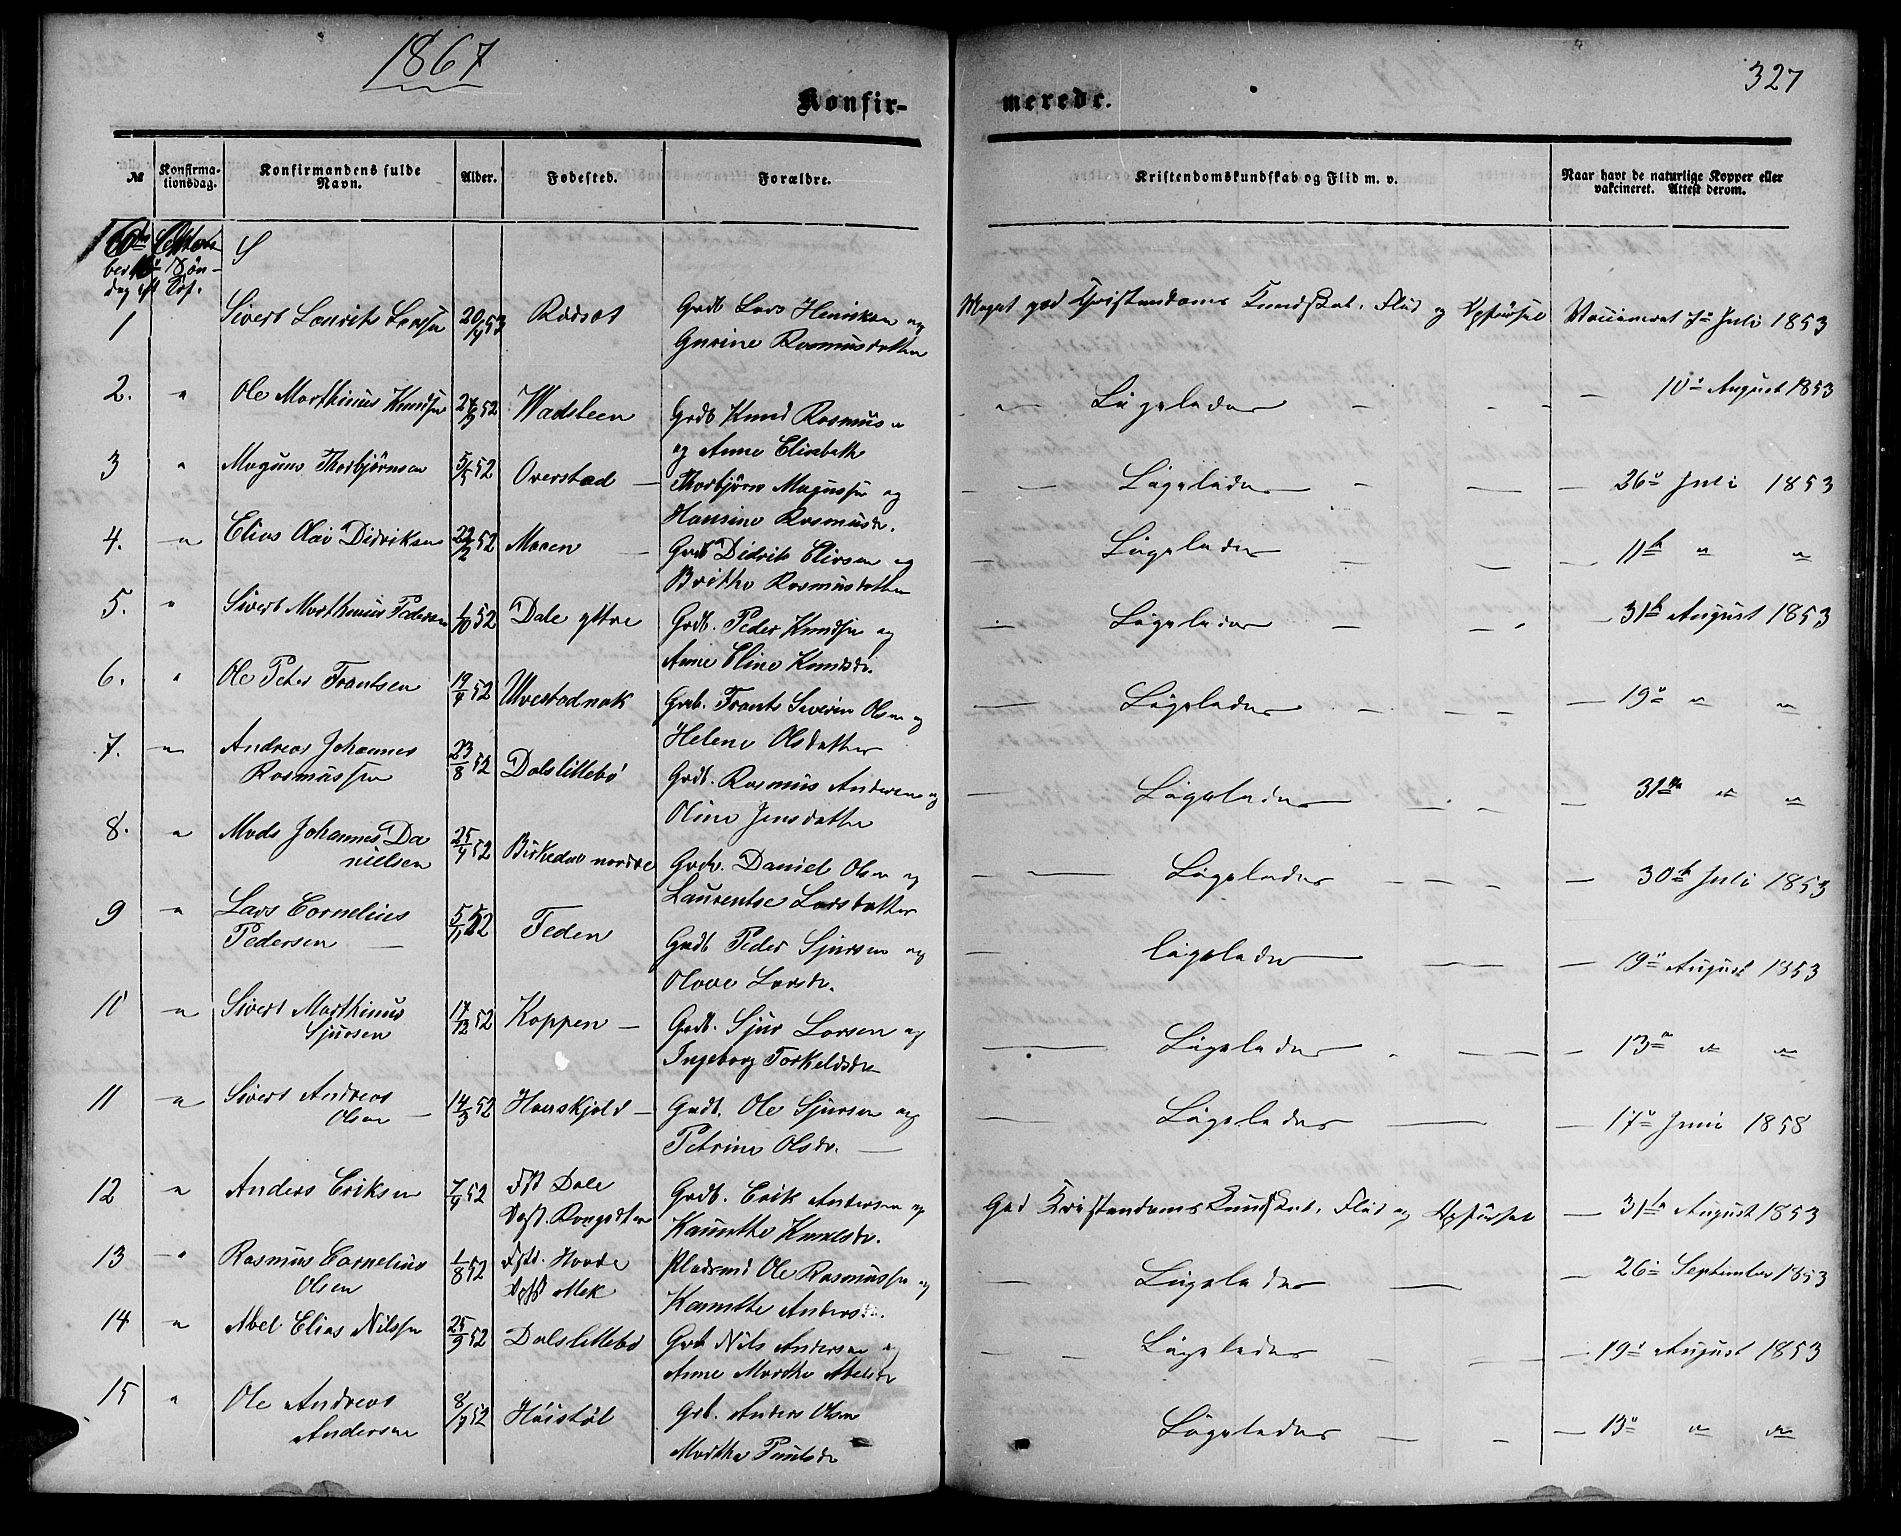 1867
327
Konfir-
merede.
№
Konfirma-
tionsdag.
Konfirmandens fulde
Navn.
Alder.
Fødested.
Forældre.
Kristendomskundskab og Flid m. v.
Naar havt de naturlige Kopper eller
vakcineret. Attest derom.
Septem
ber 18 Søn-
dag eft
1 Sivert Laurits Larssen 20/4 53 Rødsæt Grdb Lars Henriksen og
Gurine Rasmusdatter
Meget god Kristendoms Kundskab, Flid og Opførsel Vaccineret Juli 1853
2. " Ole Marthinus Knudsen 52 Wadsteen Grdb Knud Rasmus
og Anne Elisabeth
" — Ligeledes — 10 August 1853
3 " Magnus Thorbjørnsen 52 Overstad — Thorbjørn Magnussen og
Hansine Rasmusdr.
— Ligeledes — 26 Juli 1853
4. " Elias Didriksen 52 Moren — Grdb Didrik Eliasen og
Brithe Rasmusdatter
— Ligeledes — 11 " "
5. " Sivert Marthinus Pedersen 1/10 52 Dale yttre Grdb. Peder Knudsen og
Anne Eline Knudsdr.
— Ligeledes — 31 August 1853
6. " Ole Peter Frantsen 52 Ulvestadnak Grdb. Frants Severin Olsen og
Helene Olsdatter
— Ligeledes — 19 " "
7. " Andreas Johannes
Rasmussen 23/8 52 Dalslittebø Grdb. Rasmus Andersen og
Oline Jensdatter
— Ligeledes — 31 " "
8. " Mads Johannes Da
nielsen 52 Birkedal nordre Grdb. Daniel Olsen og
Laurentse Larsdatter
— Ligeledes — 30 Juli 1853
9 " Lars Cornelius
Pedersen — 52 Teden Grdb Peder Sjursen og
Olave Larsdr.
— ligeledes — 19 August 1853
10 " Sivert Marthinus
Sjursen 17/12 52 Koppen — Grdb. Sjur Larsen og
Ingeborg Torkeldsdr
— Ligeledes — 13 " "
11 " Sivert Andreas
Olsen — 14/3 52 Hovskjold — Grdb. Ole Sjursen og
Petrine Olsdr. —
— Ligeledes — 17 Juni 1858
12 " Anders Eriksen 52 Fst Dale
Grdb. Erik Andersen og
Knudsdr.
God Kristendoms Kundskab, Flid og Opførsel — 31 August 1853
13 " Rasmus Cornelius
Olsen 1/8 52 Hovde
Mek Pladsmd Ole Rasmussen og
Andersdr.
— Ligeledes — 26 September 1853
14 " Abel Elias Nilssen 25/9 52 Dalslittebø Grdb Nils Andersen og
Anne Marthe Abelsdr
— Ligeledes — 19 August 1853
15 " Ole Andreas
Andersen 52 Høistøl Grb. Anders Olsen
Marthe Paulsdr
Ligeledes — 13 " "